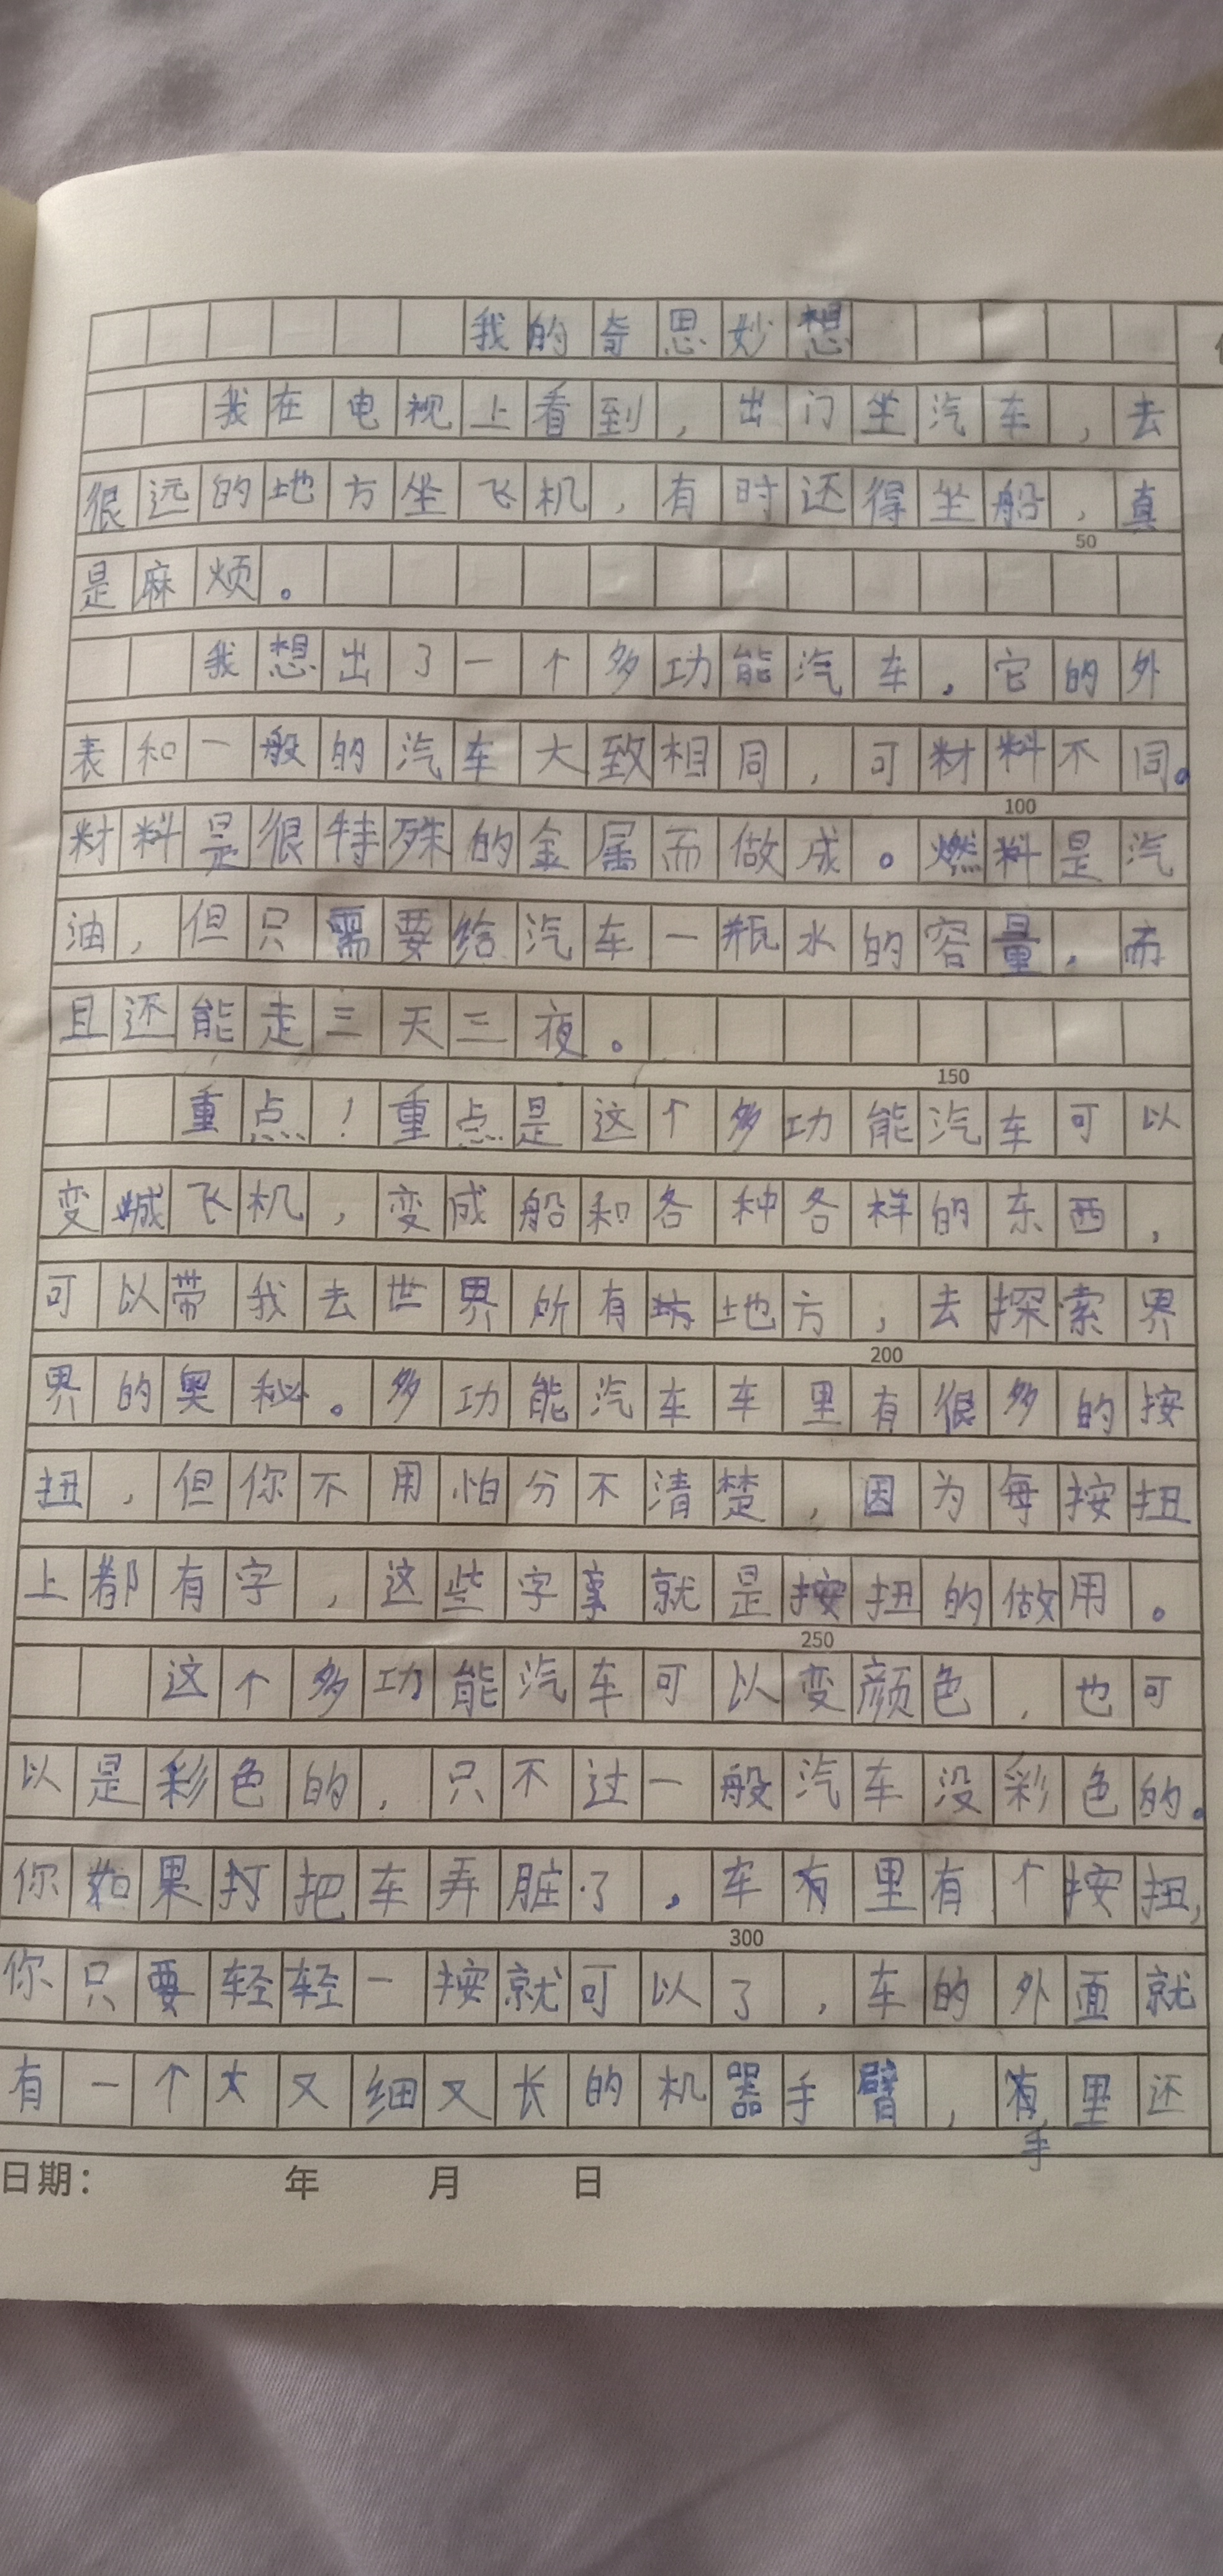 我的奇思妙想
我在电视上看到，出门坐汽车，去
很远的地方坐飞机，有时还得坐船，真
50
是麻烦。
我想出了一个多功能汽车。它的外
表和一般的汽车大致相同，可材料不同。
100
材料是很特殊的金属而做成。燃料是汽
油，但只需要给汽车一瓶水的容量。而
且还能走三天三夜。
150
重点！重点是这个多功能汽车可以
变喊飞机，变成船和各种各样的东西，
可以带我去世界所有地方，去探索界
200
界的奥秘。多功能汽车车里有很多的按
扭，但你不用怕分不清楚，因为每按扭
上都有字，这些字就是按扭的做用。
250
这个多功能汽车可以变颜色，也可
以是彩色的，只不过一般汽车没彩色的。
你如果把车弄脏了，车里有个按扭，
300
你只要轻轻一按就可以了，车的外面就
有一个大又细又长的机器手臂，手里还
日期： 年 月 日